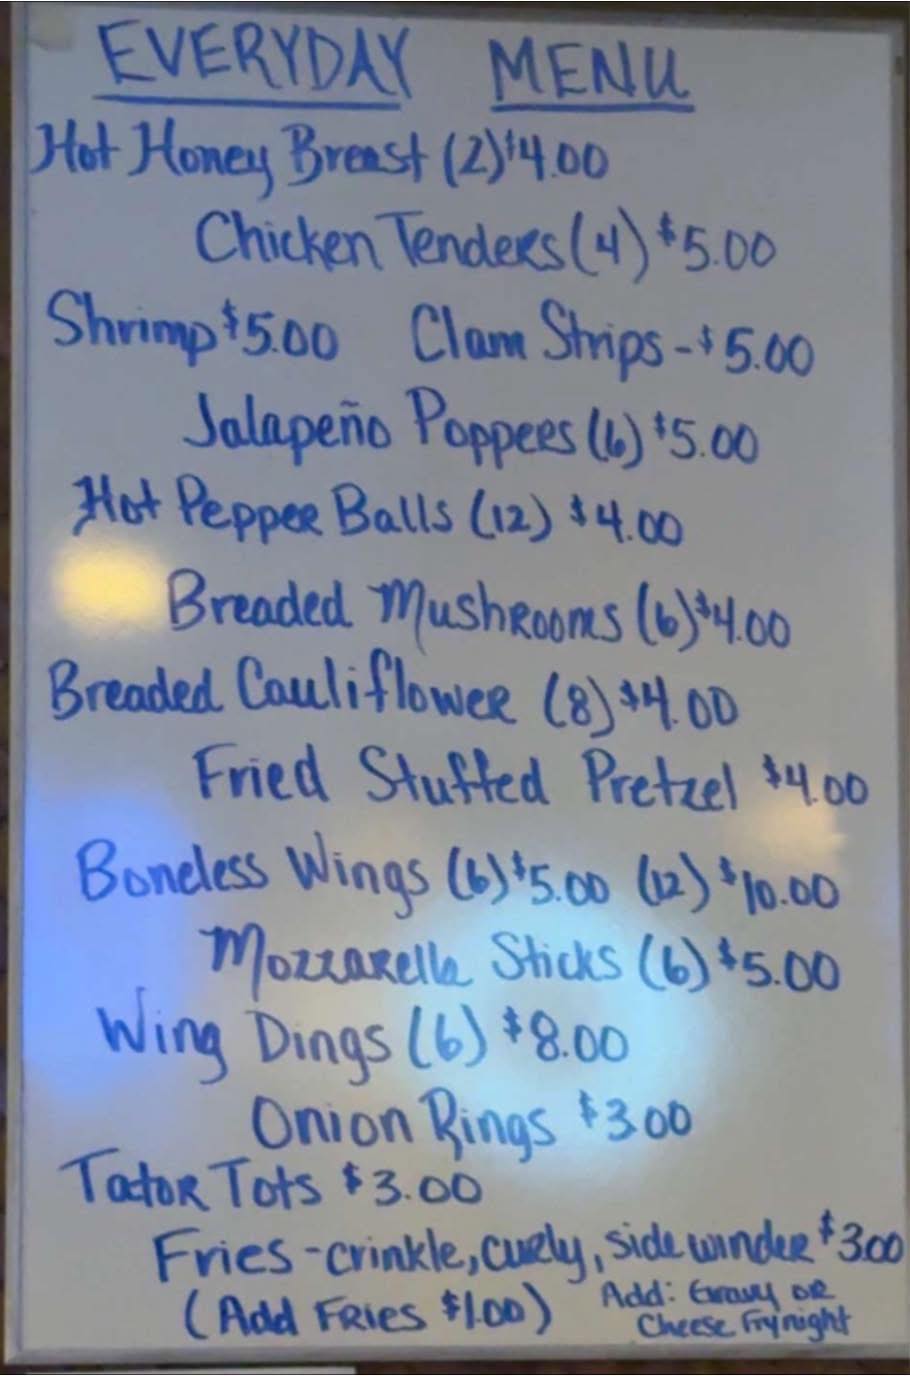 EVERYDAY MENU
Hot Honey Breast (2) $4.00
Chicken Tenders (4) $5.00
Shrimp $5.00 Clam Strips - $5.00
Jalapeño Poppers (6) $5.00
Hot Pepper Balls (12) $4.00
Breaded Mushrooms (6) $4.00
Breaded Cauliflower (8) $4.00
Fried Stuffed Pretzel $4.00
Boneless Wings (6) $5.00 (12) $10.00
Mozzarella Sticks (6) $5.00
Wing Dings (6) $8.00
Onion Rings $3.00
Tator Tots $3.00
Fries - crinkle, curly, side winder $3.00
(Add Fries $1.00) Add: Gravy or
Cheese Frynight